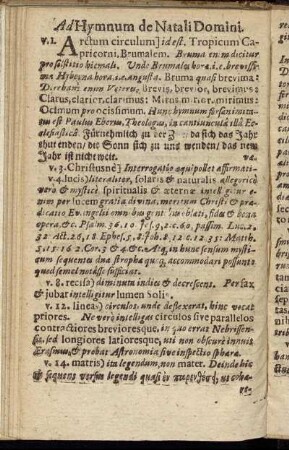 Ad Hymnum de Natali Domini.
v. 1. Arctum circulum] id est, Tropicum Ca-
pricorni, Brumalem. Bruma enim dicitur
pro solstitio hiemali. Unde Brumales hora, i. e. brevissima
Hyberna hora, i. e. angusta. Bruma quasi brevima:
Dicebant enim Veteres Brevis, brevior, brevimus:
Clarus, clarior, clarimus: Mirus, mirior, mirimus:
Ocimum pro ocissimum. Hunc hymnum
est Paulus Eberus, Theologus, in Ec-
clesiasticâ. Fürnehmlich zu der Zeit / da sich das Jahr
thut enden / die Sonn sich zu uns wenden / das new
Jahr ist nicht weit.
v. 3. Christusne] Interrogatio aequipollet affirmati-
v. 4. lucis] literaliter, solaris & naturalis allegoricè
verò & mysticè spiritualis & aeternae intelligitur enim
per lucem gratia divina, meritum Christi & prae-
dicatio Evangelii omnibus gentibus oblati, fides & bona
opera, &c. Psalm. 36. 10. Es. 9. 2. 60. per totum passim. Luc. 2.
32. Act. 26, 18. Ephes. 5, 8. Joh. 8. 12. c. 12. 35. Matth.
5, 15. 16. 2. Cor. 3 & 4. c. &c. in hunc sensum mysti-
cum sequentes duae stropha quoque accommodari possunt
quod semel notasse sufficiat.
v. 8. recisa] diminuti indies & decrescenti. Per fax
& jubar intelligitur lumen solis.
v. 12. lineas] circulos, unde deflexerat, hinc vocat
priores. Ne verò intelligas circulos sive parallelos
contractiores brevioresque, in quo errat Nebrissen-
sis, sed longiores latioresque, uti non obscurè innuit
Erasmus, & probat Astronomia sive inspectio sphaerae.
v. 14. matris] ita legendum, non mater. Deinde hic
& sequens versus legendi quasi ἐν παρενθέσει, ut cohae-
re-